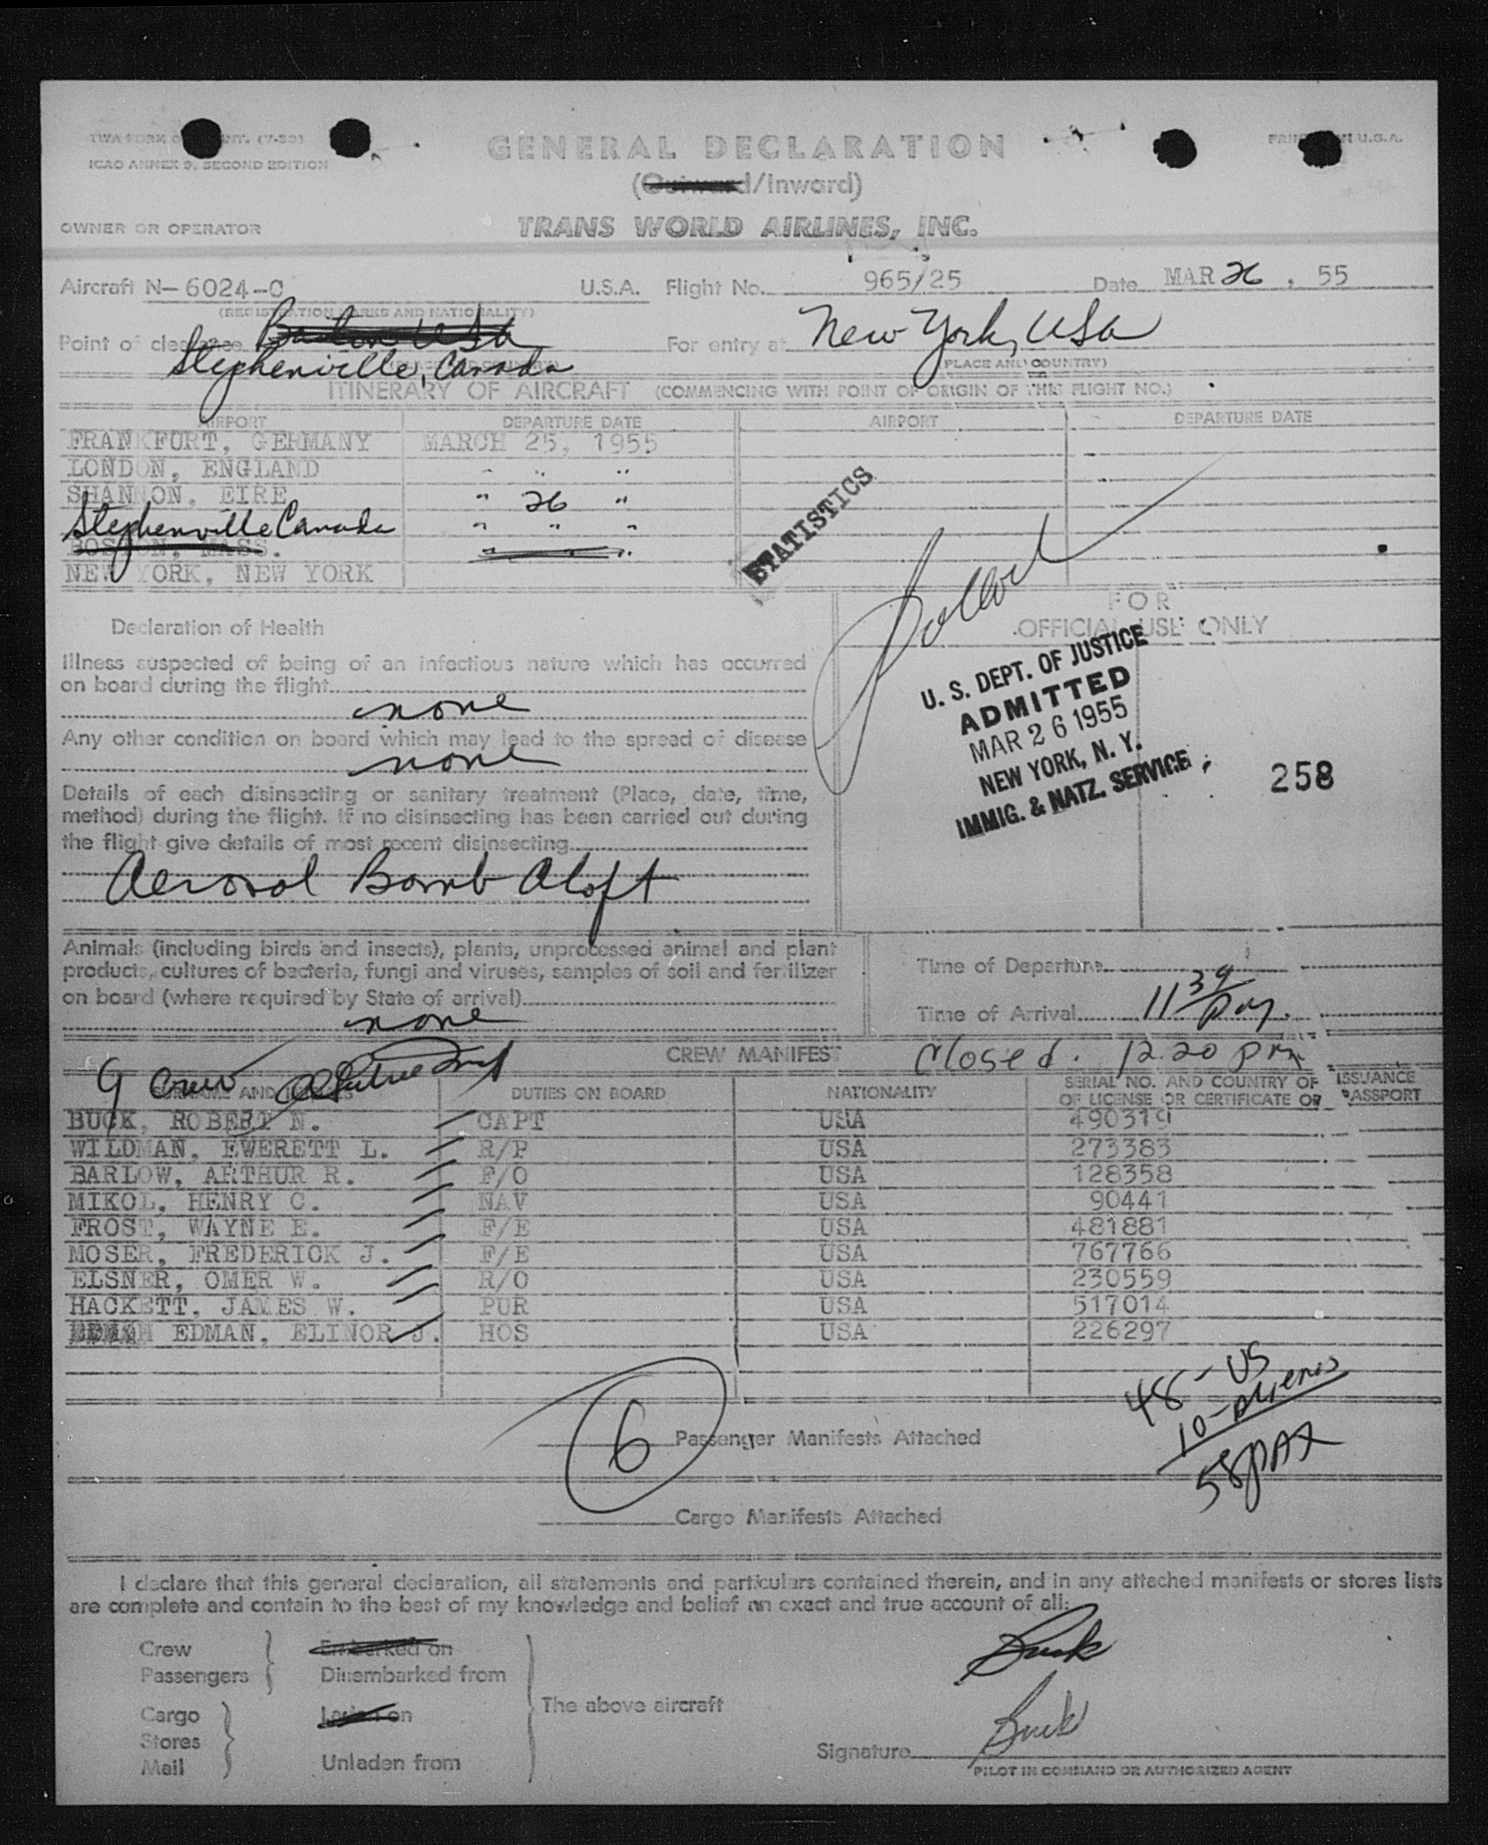 ICAO ANNEX 9, SECOND EDITION
GENERAL DECLARATION
(Outward/Inward)
OWNER OR OPERATOR TRANS WORLD AIRLINES, INC.
Aircraft N-6024-C U.S.A. Flight No. 965/25 Date MAR 26, 55
(REGISTRATION MARKS AND NATIONALITY)
Point of clearance Boston USA For entry at New York, USA
Stephenville, Canada (PLACE AND COUNTRY)
ITINERARY OF AIRCRAFT (COMMENCING WITH POINT OF ORIGIN OF THIS FLIGHT NO.)
AIRPORT DEPARTURE DATE AIRPORT DEPARTURE DATE
FRANKFURT, GERMANY MARCH 25, 1955
LONDON, ENGLAND " " "
SHANNON, EIRE " 26 "
Stephenville Canada " " "
BOSTON, MASS.
NEW YORK, NEW YORK
STATISTICS
FOR
OFFICIAL USE ONLY
Declaration of Health
Illness suspected of being of an infectious nature which has occurred
on board during the flight
none
Any other condition on board which may lead to the spread of disease
none
Details of each disinsecting or sanitary treatment (Place, date, time,
method) during the flight. If no disinsecting has been carried out during
the flight give details of most recent disinsecting
Aerosol Bomb Aloft
U. S. DEPT. OF JUSTICE
ADMITTED
MAR 26 1955
NEW YORK, N. Y.
IMMIG. & NATZ. SERVICE
258
Animals (including birds and insects), plants, unprocessed animal and plant
products, cultures of bacteria, fungi and viruses, samples of soil and fertilizer
on board (where required by State of arrival)
none
Time of Departure
Time of Arrival 11 39 pm.
CREW MANIFEST Closed. 12.20 pm
9 Crew
SURNAME AND INITIALS DUTIES ON BOARD NATIONALITY SERIAL NO. AND COUNTRY OF ISSUANCE
OF LICENSE OR CERTIFICATE OR PASSPORT
BUCK, ROBERT N. CAPT USA 490319
WILDMAN, EVERETT L. R/P USA 273383
BARLOW, ARTHUR R. F/O USA 128358
MIKOL, HENRY C. NAV USA 90441
FROST, WAYNE E. F/E USA 481881
MOSER, FREDERICK J. F/E USA 767766
ELSNER, OMER W. R/O USA 230559
HACKETT, JAMES W. PUR USA 517014
EDMAN, ELINOR J. HOS USA 226297
48-US
10-Aliens
58 pax
6 Passenger Manifests Attached
Cargo Manifests Attached
I declare that this general declaration, all statements and particulars contained therein, and in any attached manifests or stores lists
are complete and contain to the best of my knowledge and belief an exact and true account of all:
Crew Embarked on
Passengers Disembarked from
Cargo Laden on
Stores
Mail Unladen from
The above aircraft
Buck
Signature Buck
PILOT IN COMMAND OR AUTHORIZED AGENT